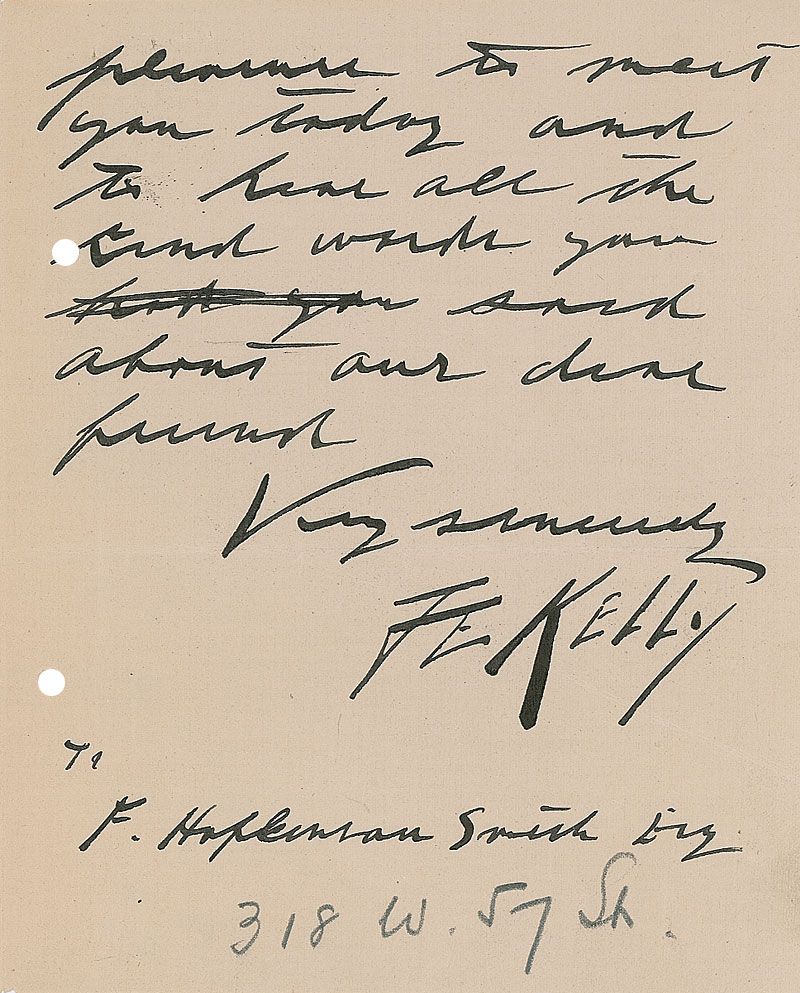 pleasure to meet
you today and
to hear all the
kind words you
that you said
about our dear
friend
Very sincerely
FE Kelly
To
F. Hopkinson Smith Esq
318 W. 57 St.